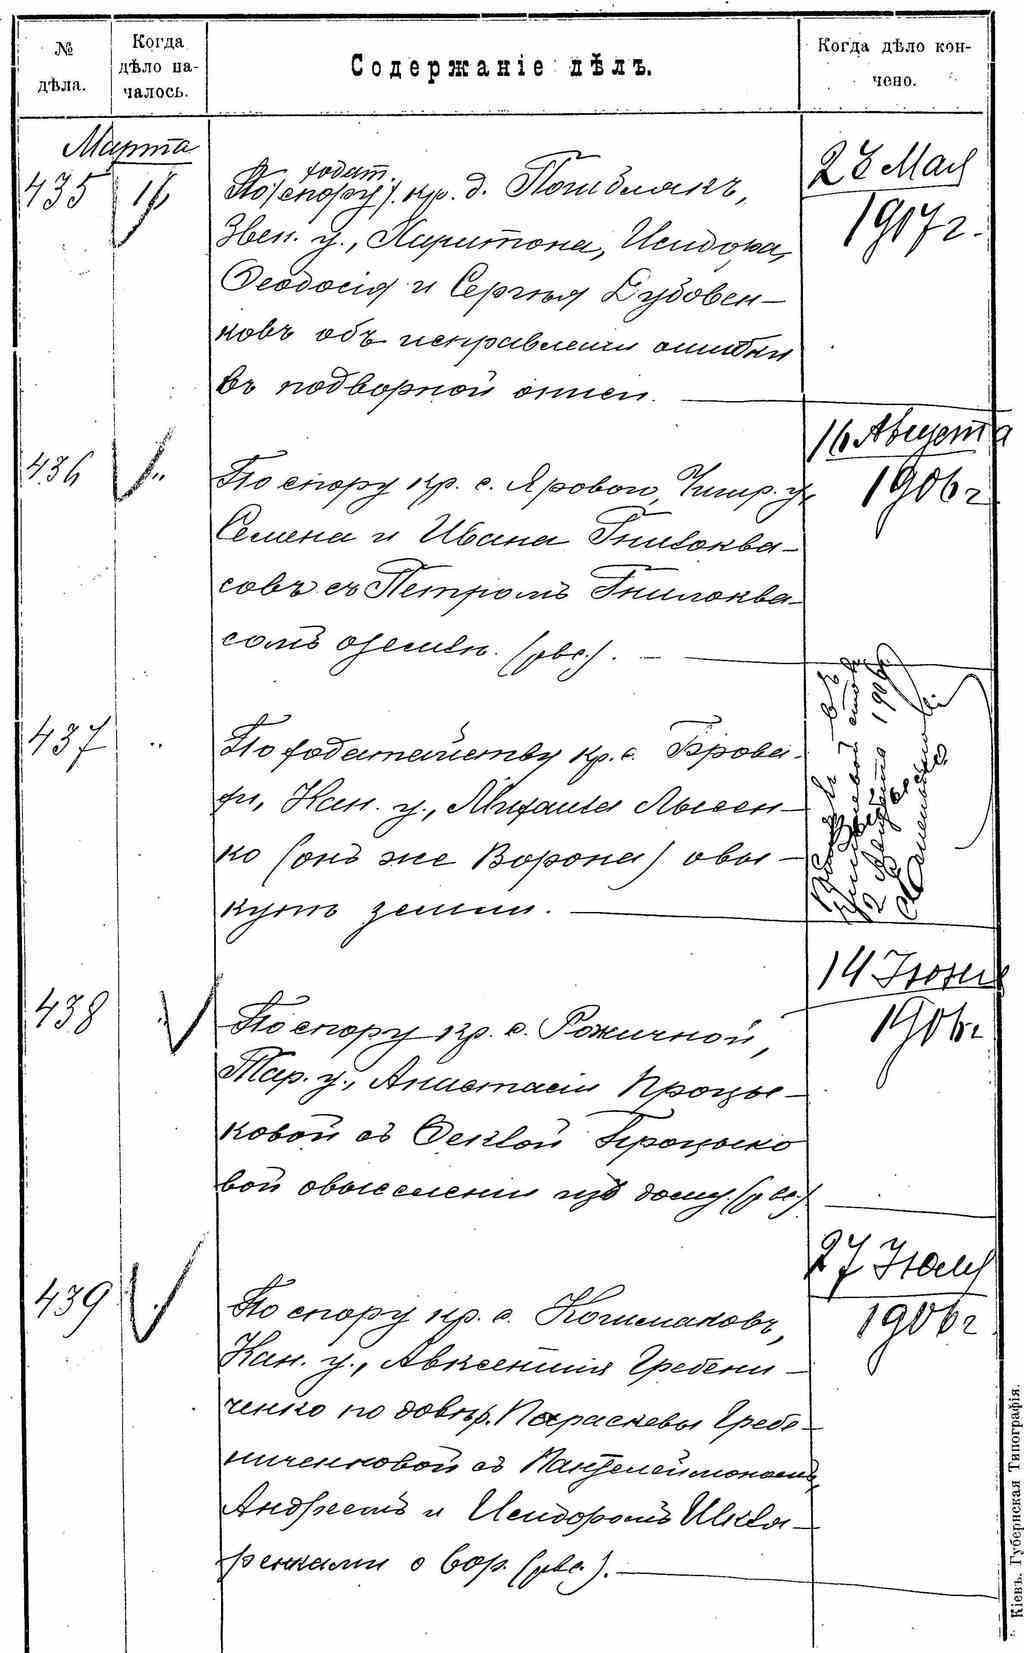 № дѣла.
Когда дѣло на-чалось.
Содержаніе дѣлъ.
Когда дѣло кон-чено.
Марта
435 16
ходат.
По (спору) кр. д. Погиблякъ,
Звен. у., Харитона, Исидора,
Ѳеодосія и Сергѣя Дубовен-
ковъ объ исправленіи ошибки
въ подворной описи.
23 Мая
1917 г.
436 "
По спору кр. с. Яровой, Чигир. у,
Семена и Ивана Гнилоква-
совъ съ Петромъ Гнилоква-
сомъ о землѣ.
16 Августа
1906 г
437 "
По ходатайству кр. с. Брова-
хи, Кан. у., Михаила Лысен-
ко (онъ же Ворона) о вы-
купѣ земли.
въ
2 Августа 1906 г.
438 "
По спору кр. с. Рожичной,
Тар. у., Анастасіи Процы-
ковой съ Ѳеклой Процыко
вой о выселеніи изъ дому.
14 Іюня
1906 г
439 "
По спору кр. с. Кошмаковъ,
Кан. у., Авксентія Гребени-
ченко по довѣр. Параскевы Гребе-
ниченковой съ Пантелеймономъ,
Андреемъ и Исидоромъ Шкля-
ренками о
27 Іюля
1906 г
Кіевъ. Губернская Типографія.